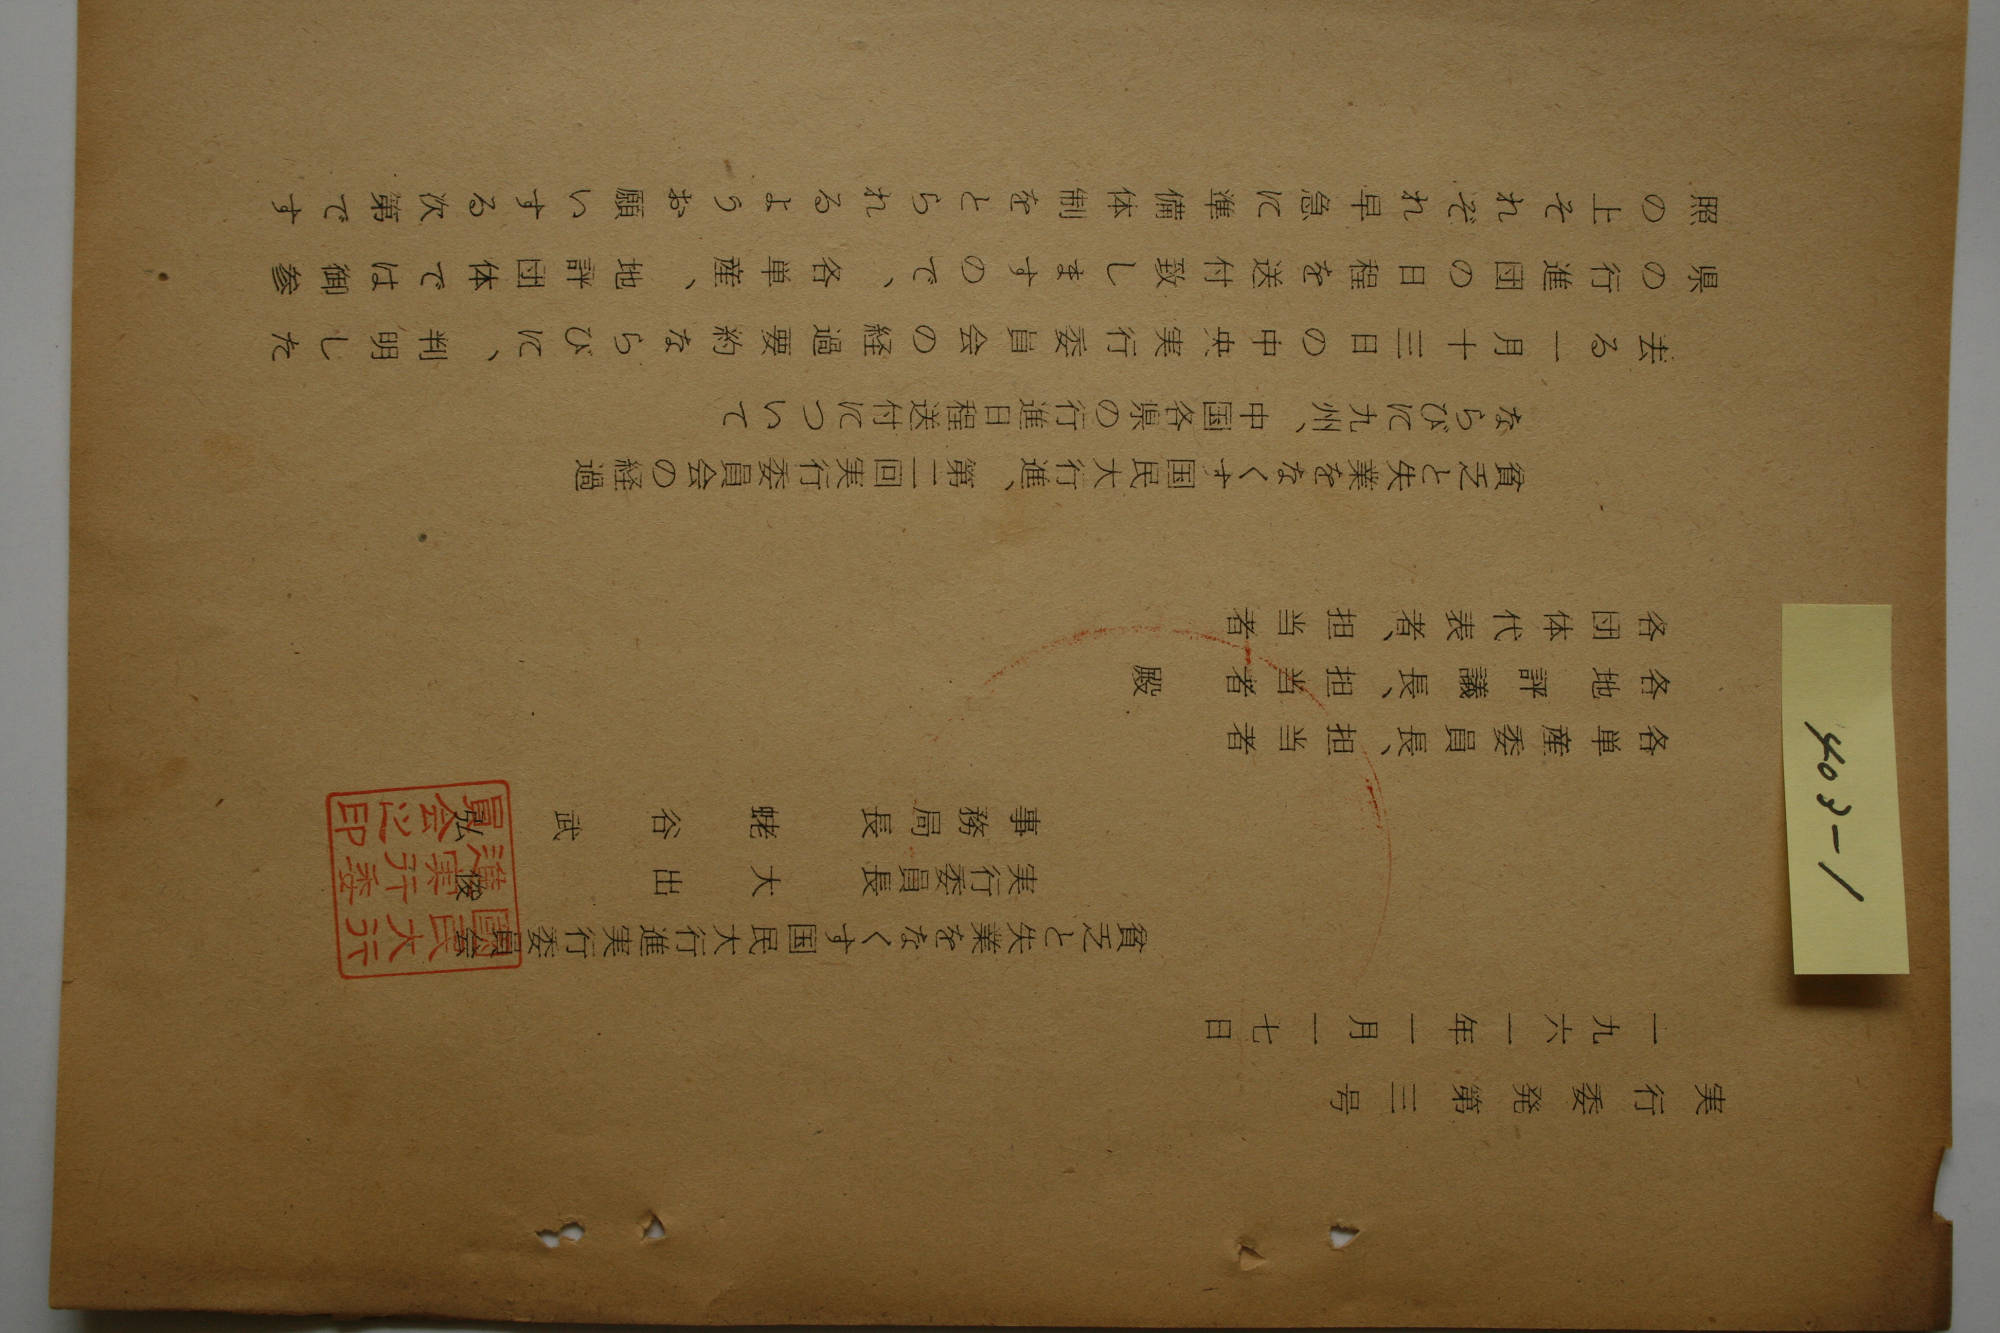 403-1
実行委発第三号
一九六一年一月一七日
貧乏と失業をなくす国民大行進実行委員会
実行委員長 大出 俊
事務局長 蛯谷武弘
各単産委員長、担当者
各地評議長、担当者 殿
各団体代表者、担当者
貧乏と失業をなくす国民大行進、第二回実行委員会の経過
ならびに九州、中国各県の行進日程送付について
去る一月十三日の中央実行委員会の経過要約ならびに、判明した
県の行進団の日程を送付致しますので、各単産、地評団体では御参
照の上それぞれ早急に準備体制をとられるようお願いする次第です
国民大行
進実行委
員会之印